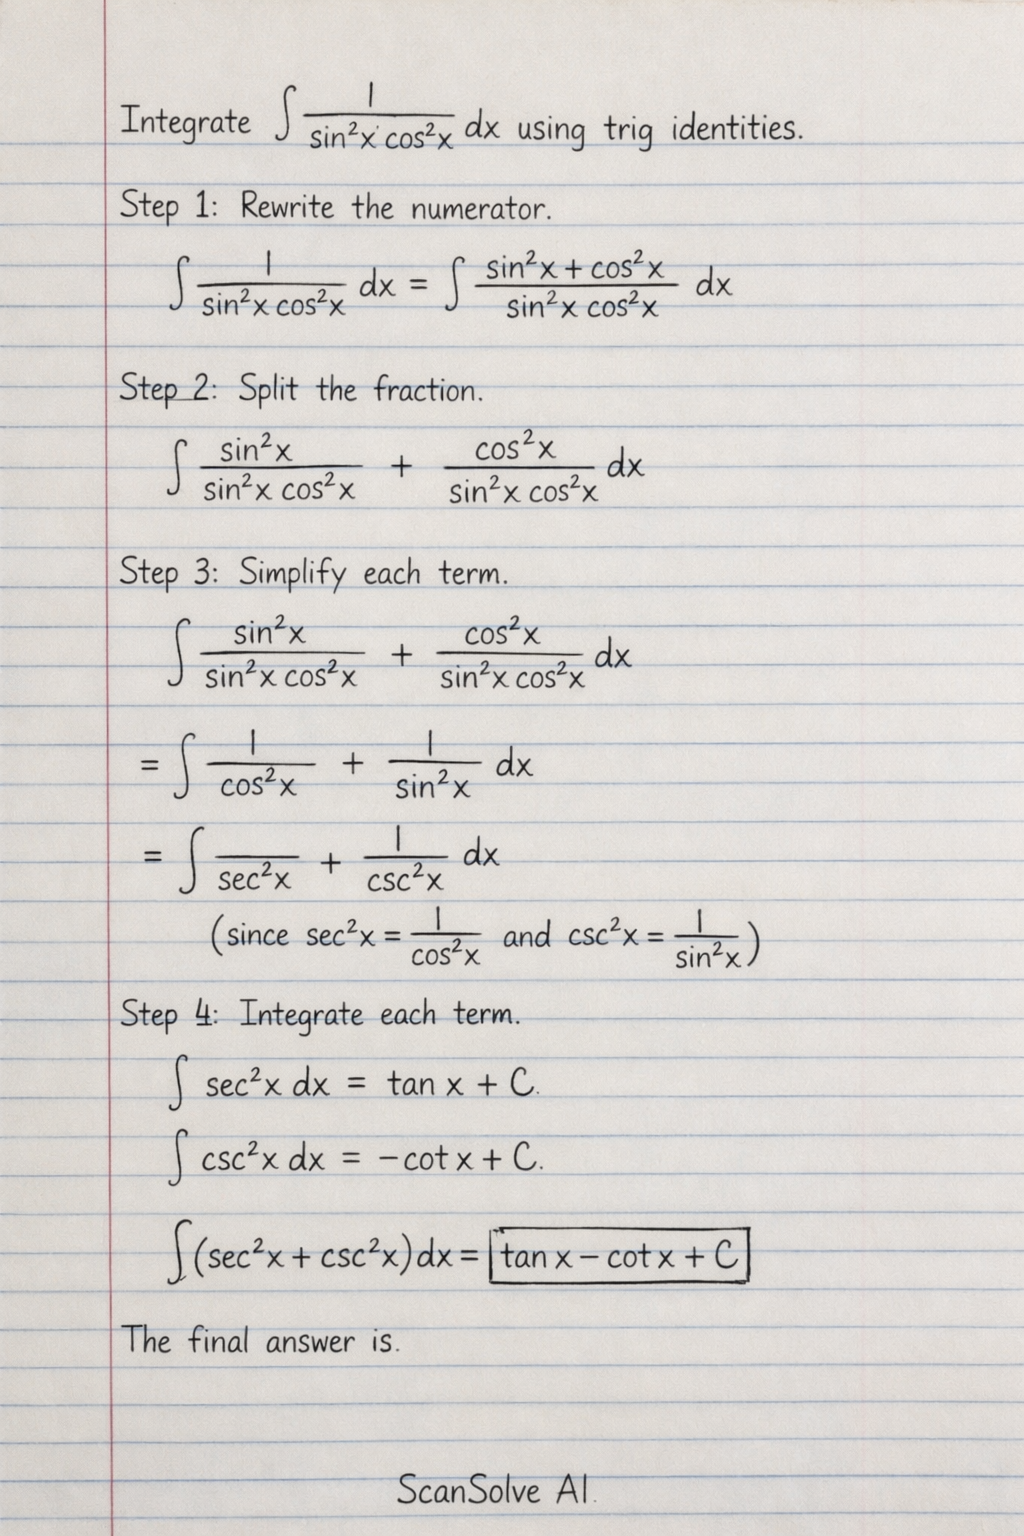 Integrate ∫ 1/(sin²x cos²x) dx using trig identities.
Step 1: Rewrite the numerator.
∫ 1/(sin²x cos²x) dx = ∫ (sin²x + cos²x)/(sin²x cos²x) dx
Step 2: Split the fraction.
∫ sin²x/(sin²x cos²x) + cos²x/(sin²x cos²x) dx
Step 3: Simplify each term.
∫ sin²x/(sin²x cos²x) + cos²x/(sin²x cos²x) dx
= ∫ 1/cos²x + 1/sin²x dx
= ∫ /sec²x + 1/csc²x dx
(since sec²x = 1/cos²x and csc²x = 1/sin²x)
Step 4: Integrate each term.
∫ sec²x dx = tan x + C.
∫ csc²x dx = -cot x + C.
∫(sec²x + csc²x)dx = tan x - cot x + C
The final answer is.
ScanSolve AI.